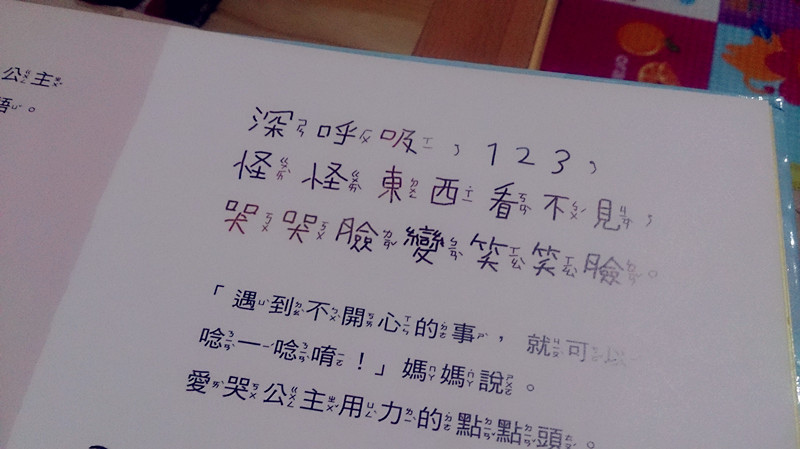 公主
語。
深呼吸，123，
怪怪東西看不見，
哭哭臉變笑笑臉。
「遇到不開心的事，就可以
唸一唸唷！」媽媽說。
愛哭公主用力的點點頭。